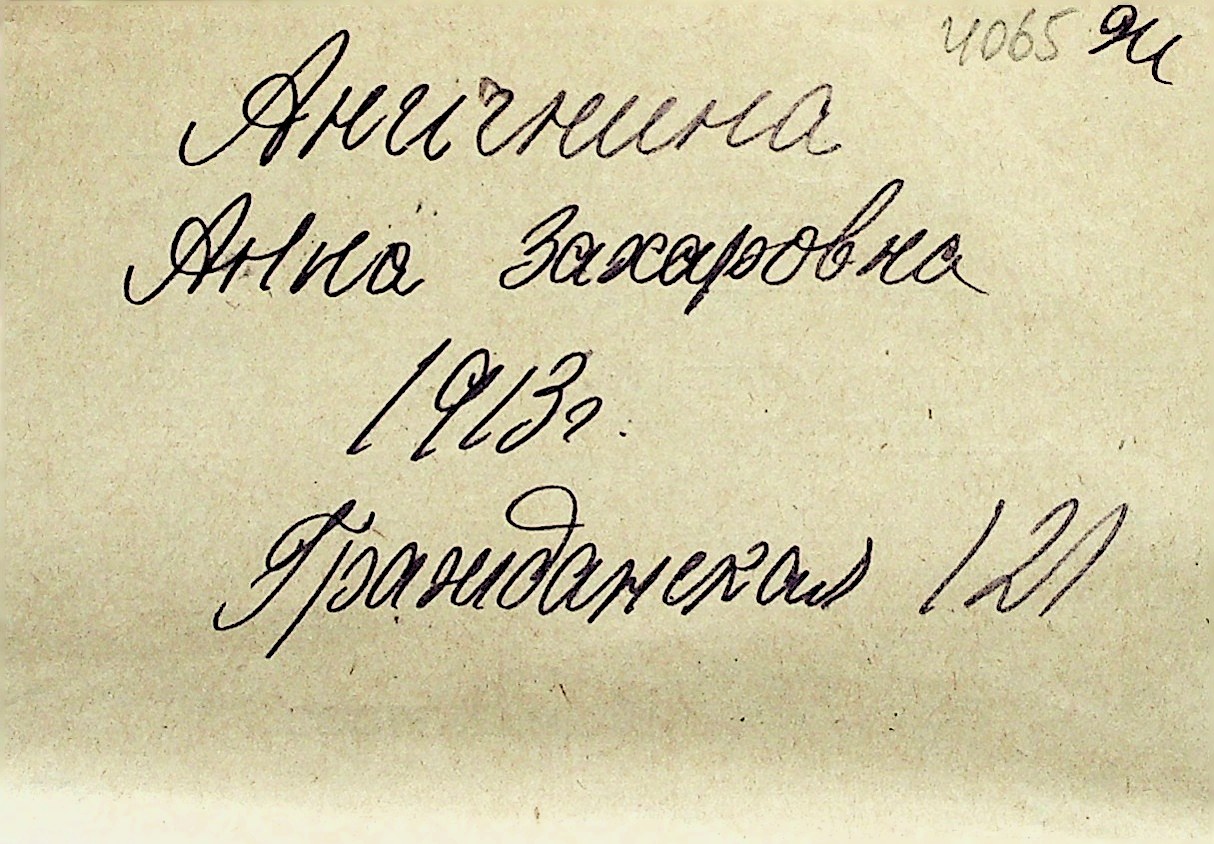 4065
Аничкина
Анна Захаровна
1913г.
Гражданская 121